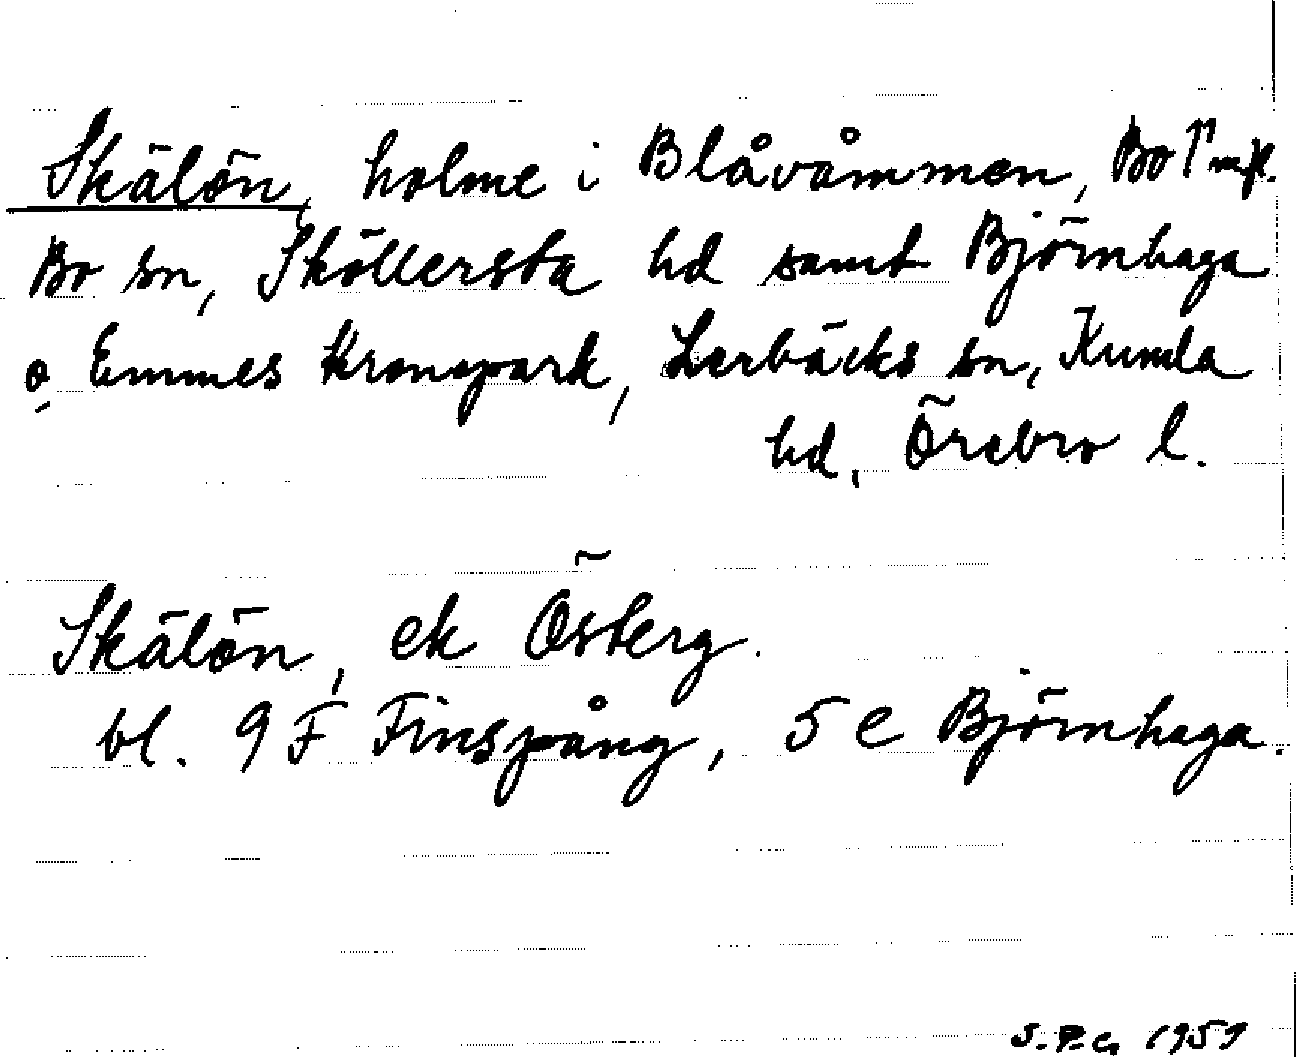 Skälön, holme i Blåvåmmen, Bo 1 m fl.
Bo sn, Sköllersta hd samt Björnhaga
o. Emmes Kronopark, Lerbäcks sn, Kumla
hd, Örebro l.
Skälön, ek Österg.
bl. 9 F Finspång, 5 e Björnhaga.
S.P.G 1959